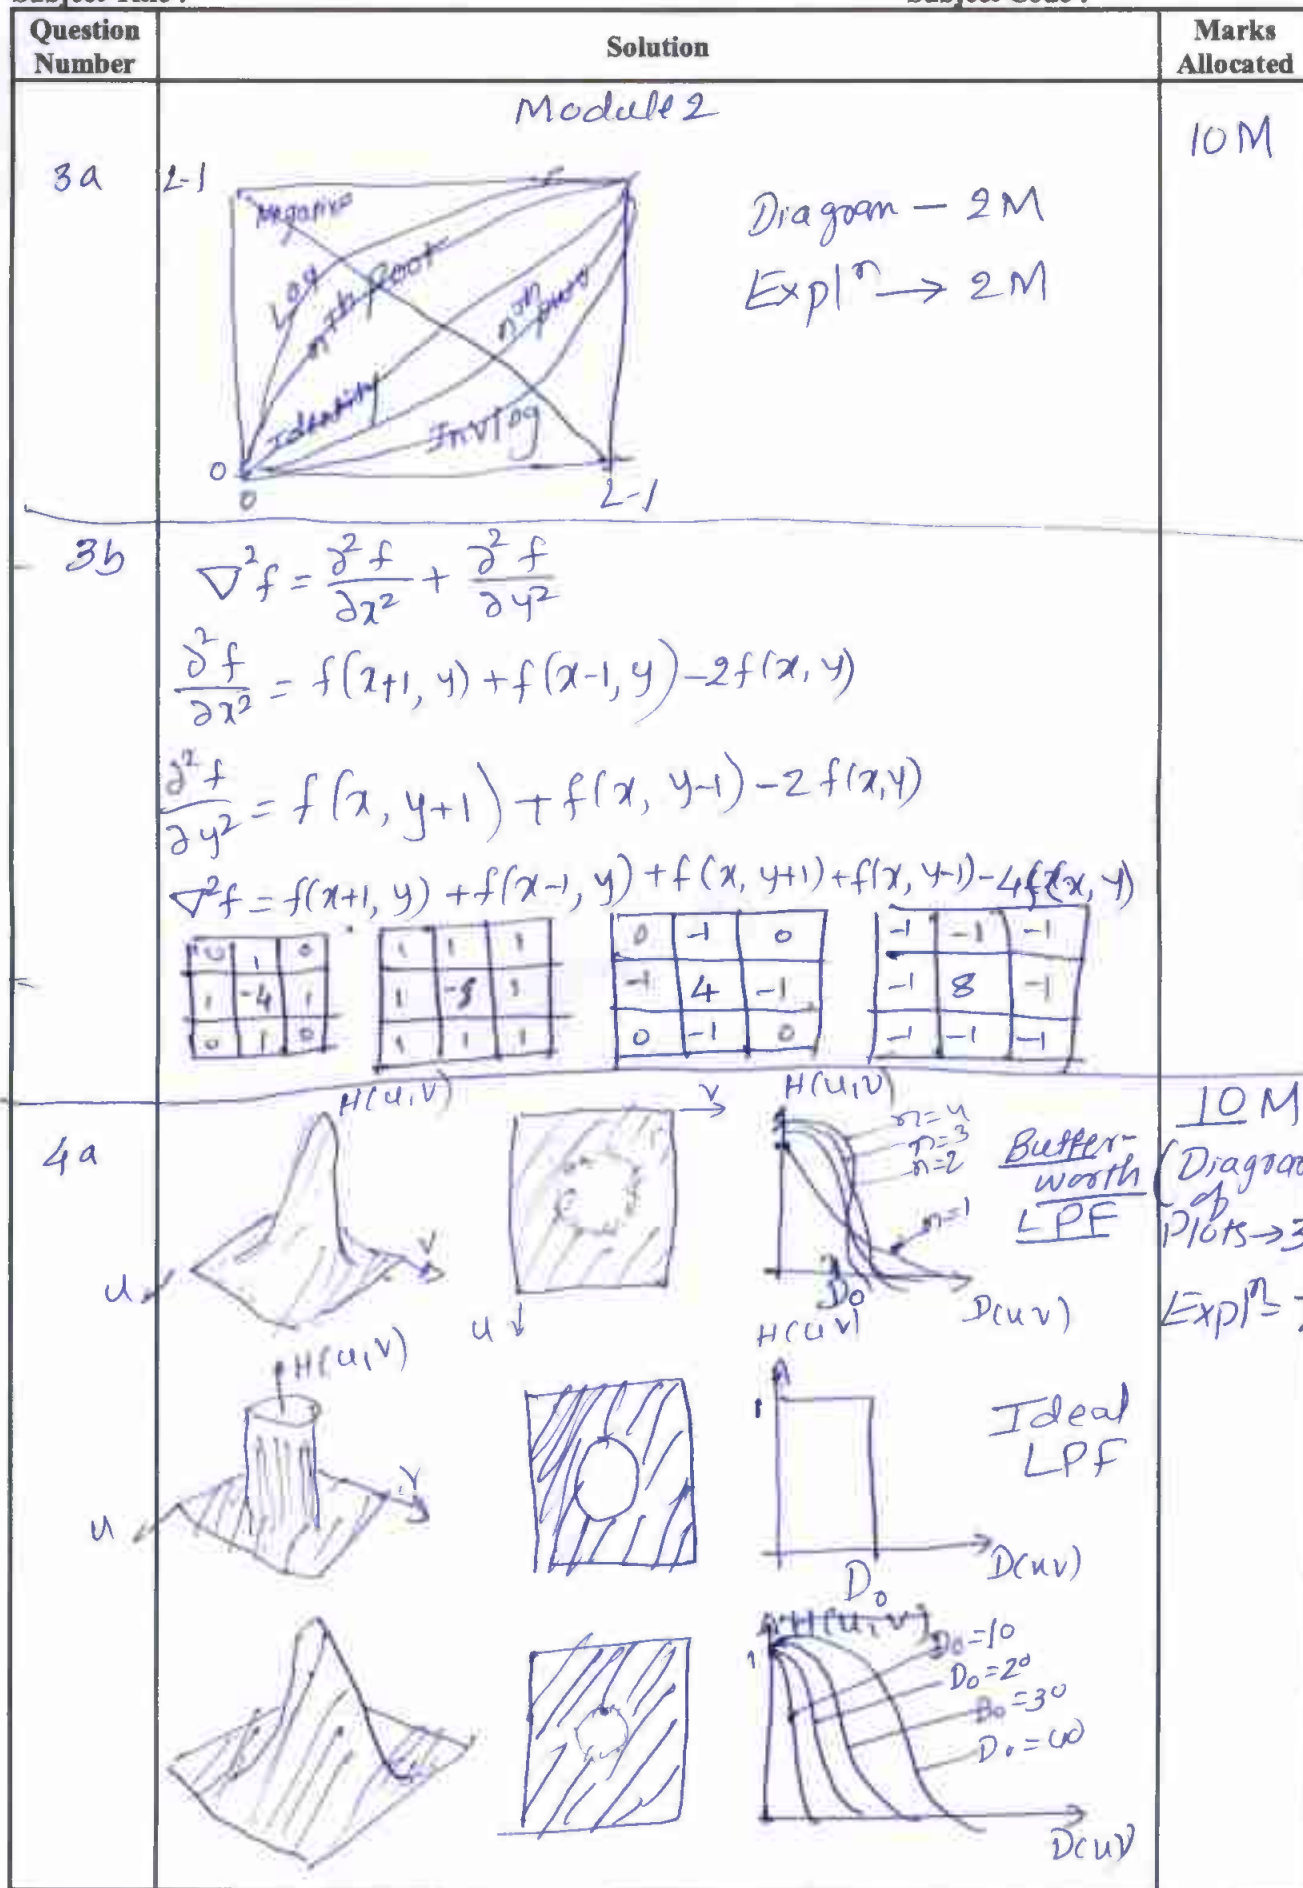 Question Number
Solution
Marks Allocated
Module 2
10 M
3a
L-1
Negative
Log
nth Root
Identity
nth power
Inv log
0
0
L-1
Diagram - 2M
Expl^n → 2M
3b
∇²f = ∂²f/∂x² + ∂²f/∂y²
∂²f/∂x² = f(x+1, y) + f(x-1, y) - 2f(x, y)
∂²f/∂y² = f(x, y+1) + f(x, y-1) - 2f(x,y)
∇²f = f(x+1, y) + f(x-1, y) + f(x, y+1) + f(x, y-1) - 4f(x, y)
0 1 0
1 -4 1
0 1 0
1 1 1
1 -8 1
1 1 1
0 -1 0
-1 4 -1
0 -1 0
-1 -1 -1
-1 8 -1
-1 -1 -1
4a
H(u,v)
v
u
v
u
H(u,v)
n=4
n=3
n=2
n=1
D₀
D(uv)
Butter-
worth
LPF
10 M
(Diagram
of
Plots→3
Expl^n=7
H(u,v)
v
u
H(uv)
1
D₀
D(uv)
Ideal
LPF
H(u,v)
1
D₀=10
D₀=20
D₀=30
D₀=40
D(uv)